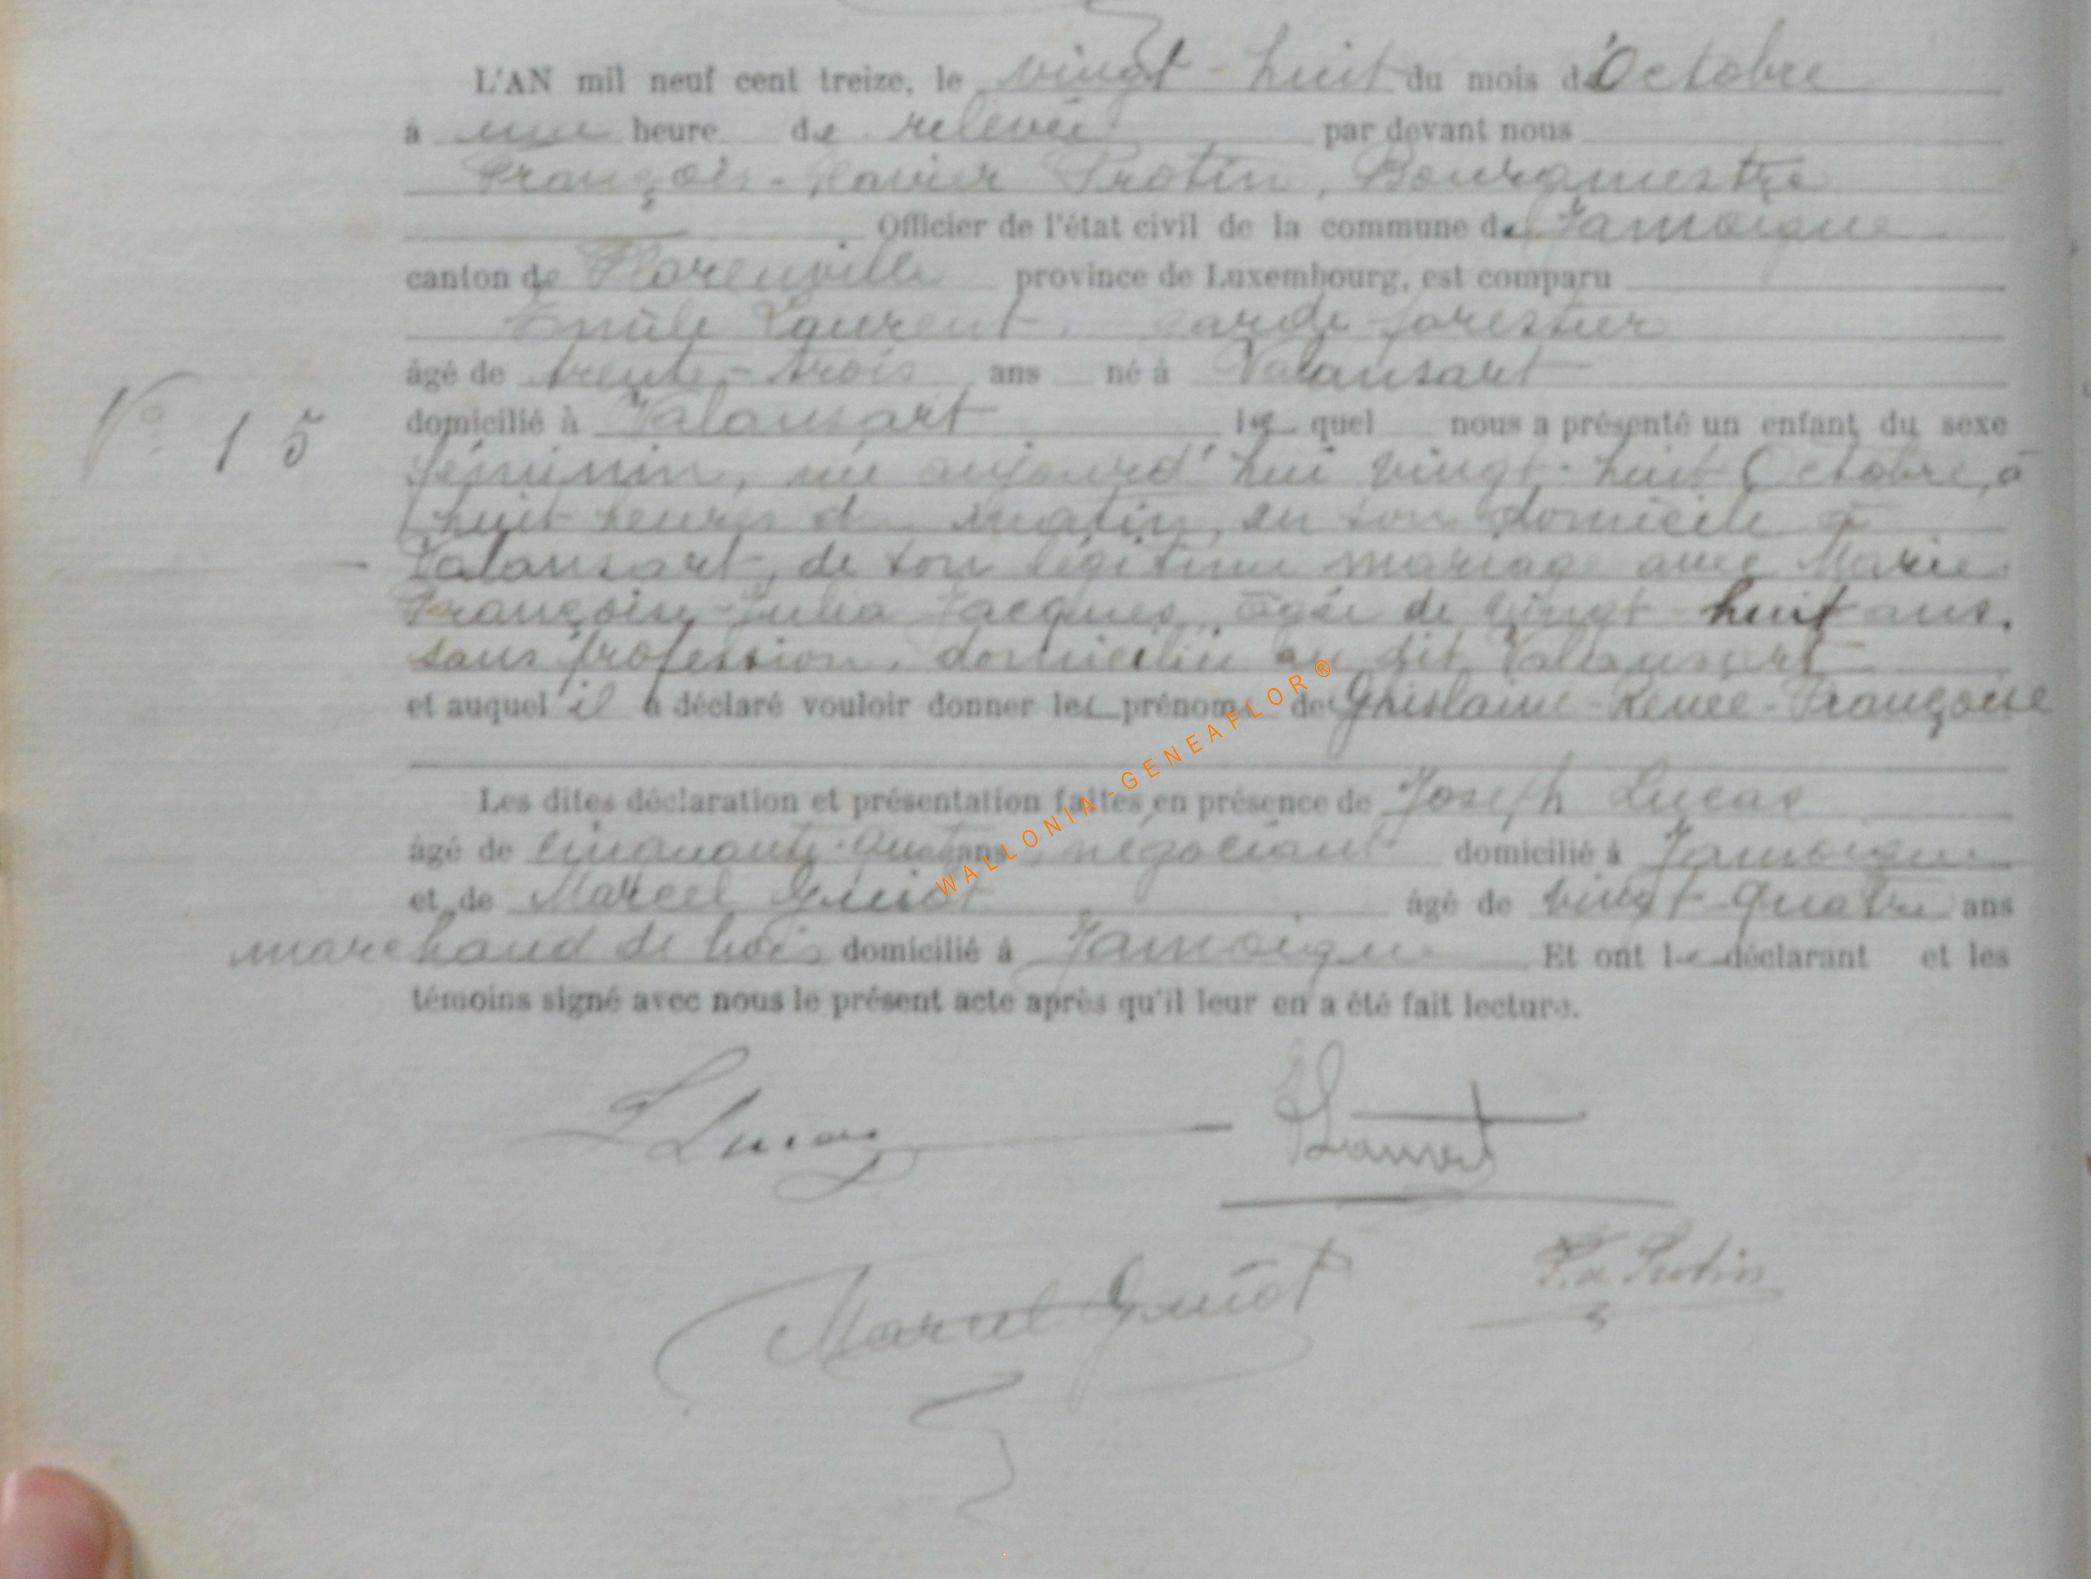 L'AN mil neuf cent treize, le vingt-huit du mois d'Octobre
à une heure de relevée par devant nous
François-Xavier Protin, Bourgmestre
Officier de l'état civil de la commune de Jamoigne
canton de Florenville province de Luxembourg, est comparu
Emile Laurent, garde forestier
âgé de trente-trois ans né à Valansart
domicilié à Valansart lequel nous a présenté un enfant du sexe
N° 15
féminin, née aujourd'hui vingt-huit Octobre, à
huit heures du matin, en son domicile à
Valansart, de son légitime mariage avec Marie
Françoise-Julia Jacques, âgée de vingt-huit ans,
sans profession, domiciliée au dit Valansart
et auquel il a déclaré vouloir donner les prénoms de Ghislaine-Renée-Françoise
Les dites déclaration et présentation faites en présence de Joseph Lucas
âgé de cinquante-quatre ans négociant domicilié à Jamoigne
et de Marcel Guiot âgé de vingt-quatre ans
marchand de bois domicilié à Jamoigne Et ont le déclarant et les
témoins signé avec nous le présent acte après qu'il leur en a été fait lecture.
Lucas
Laurent
Marcel Guiot
F.X. Protin
WALLONIA-GENEAFLOR®